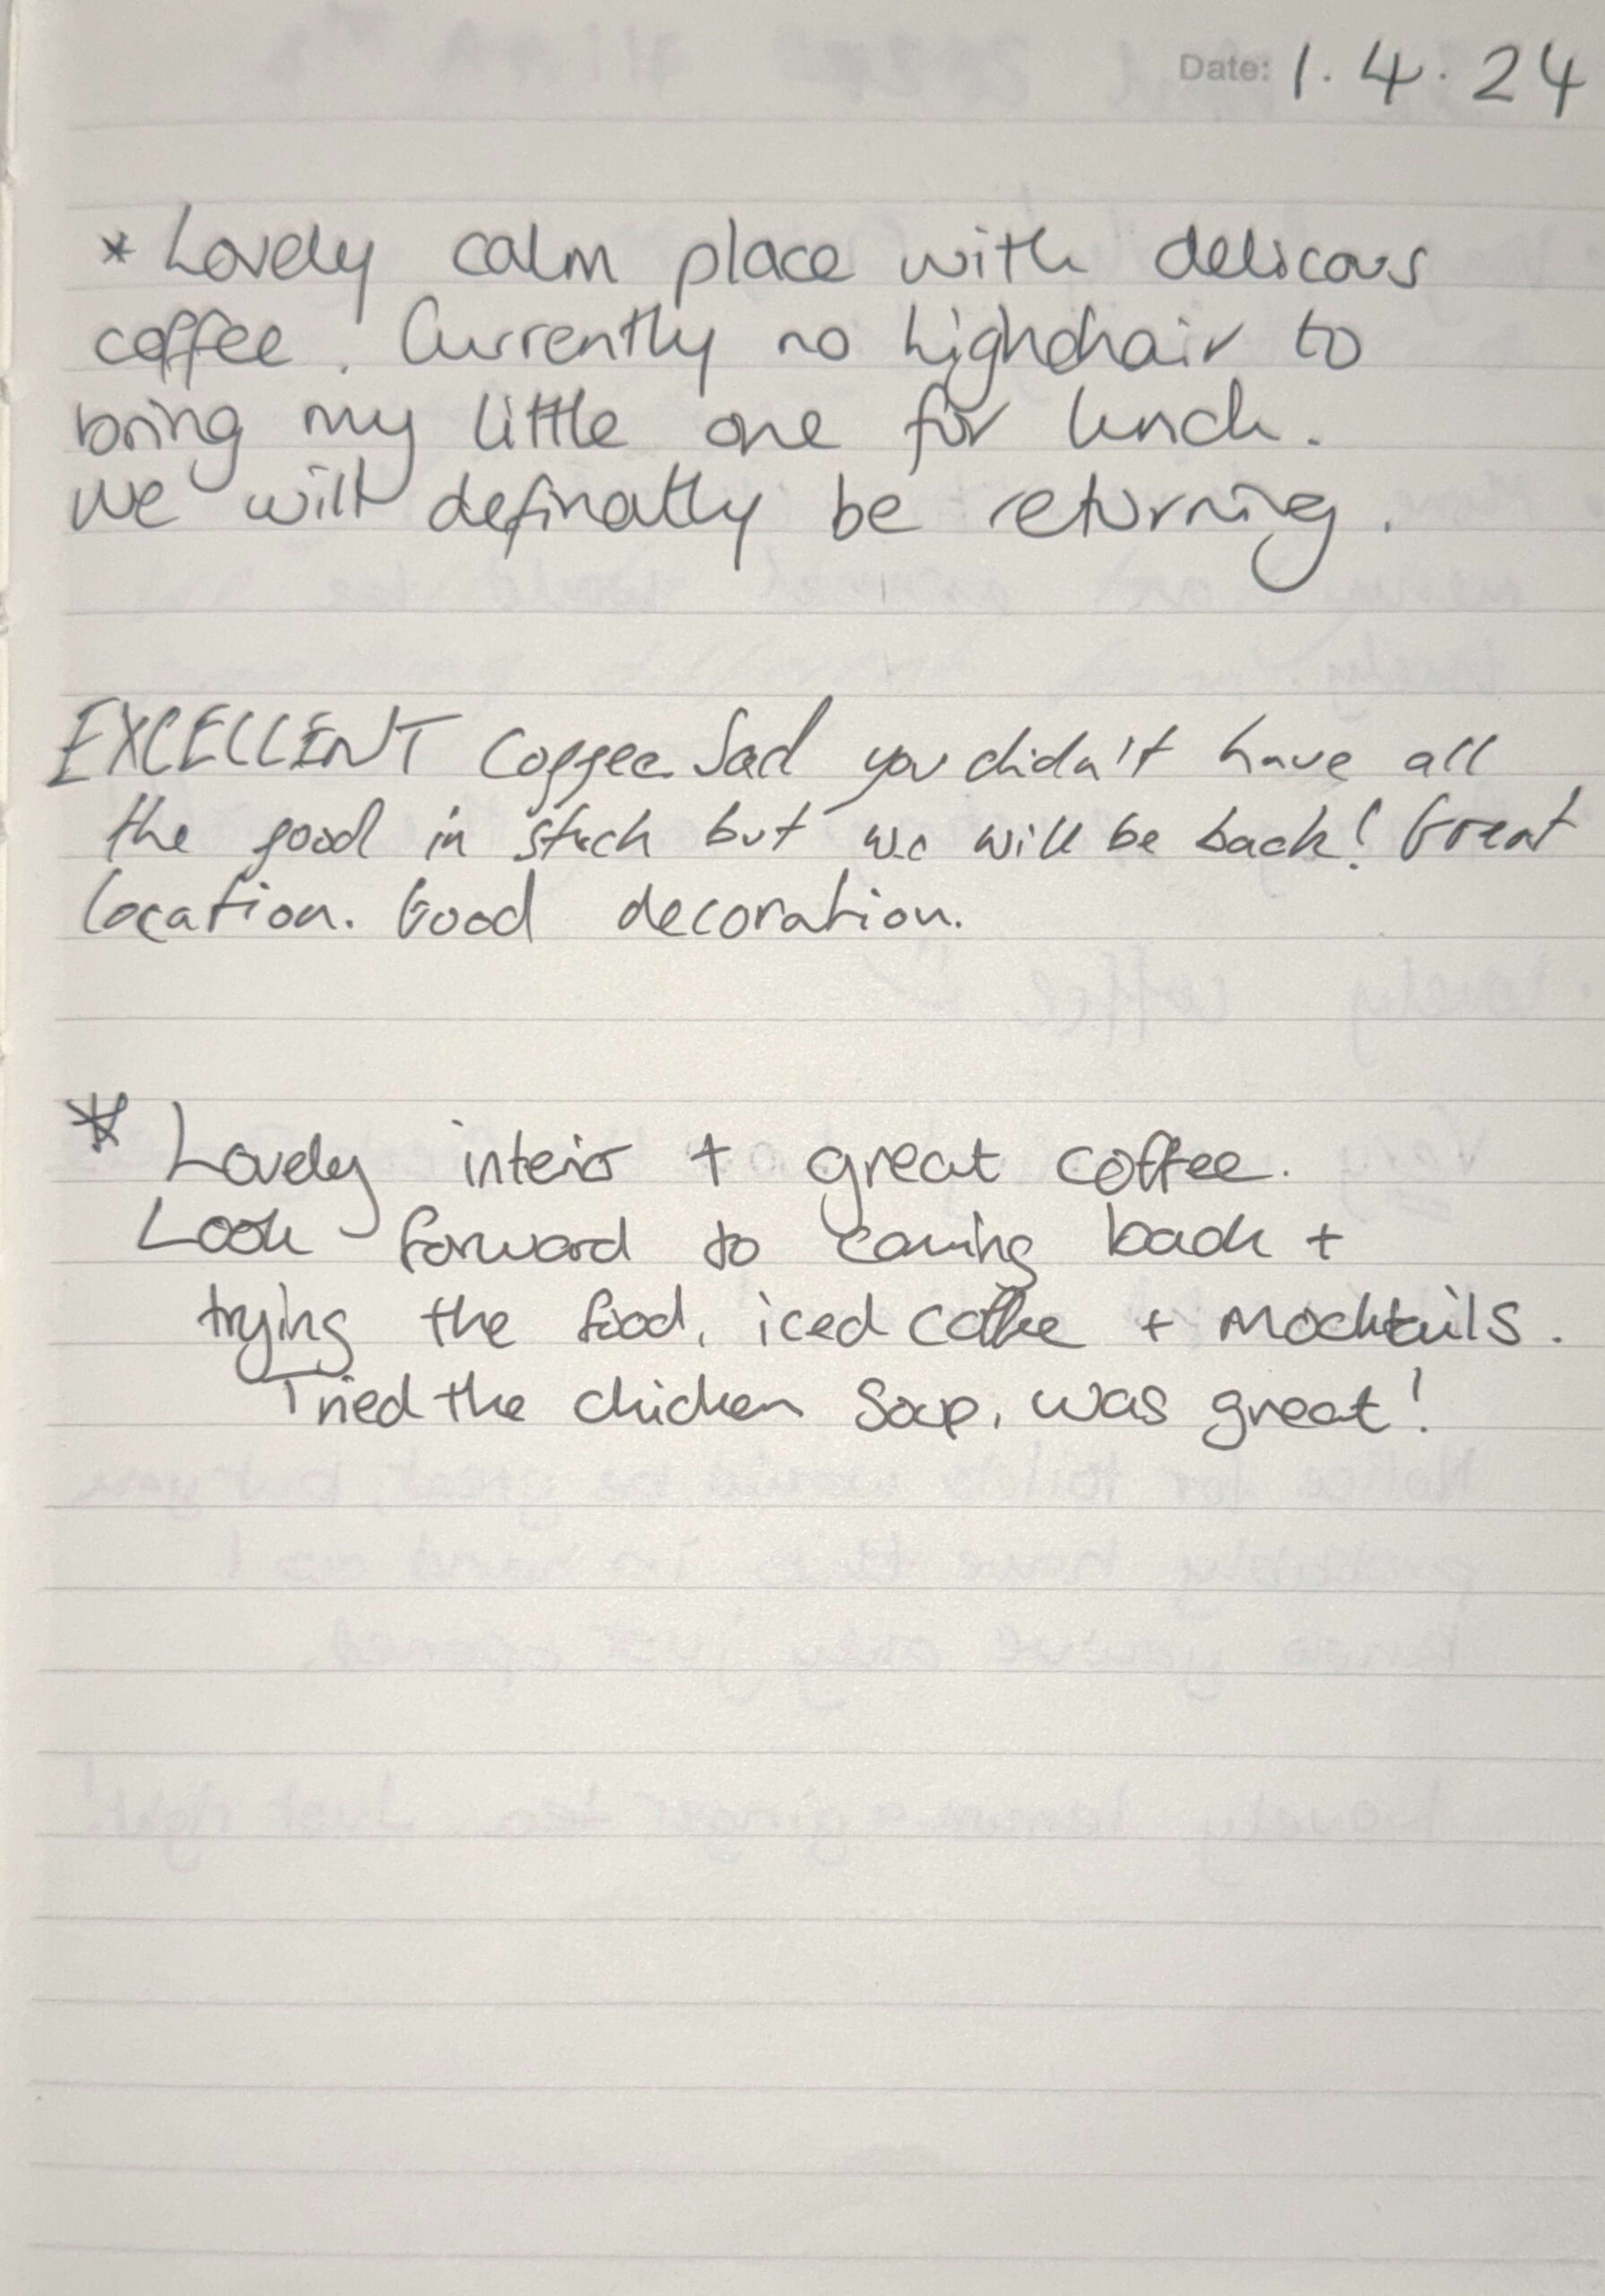 Date: 1.4.24
* Lovely calm place with delicous
coffee. Currently no highchair to
bring my little one for lunch.
We will definatly be returning.
EXCELLENT Coffee. Sad you didn't have all
the food in stock but we will be back! Great
location. Good decoration.
* Lovely interior + great coffee.
Look forward to coming back +
trying the food, iced coffee + mocktails.
Tried the chicken soup, was great!